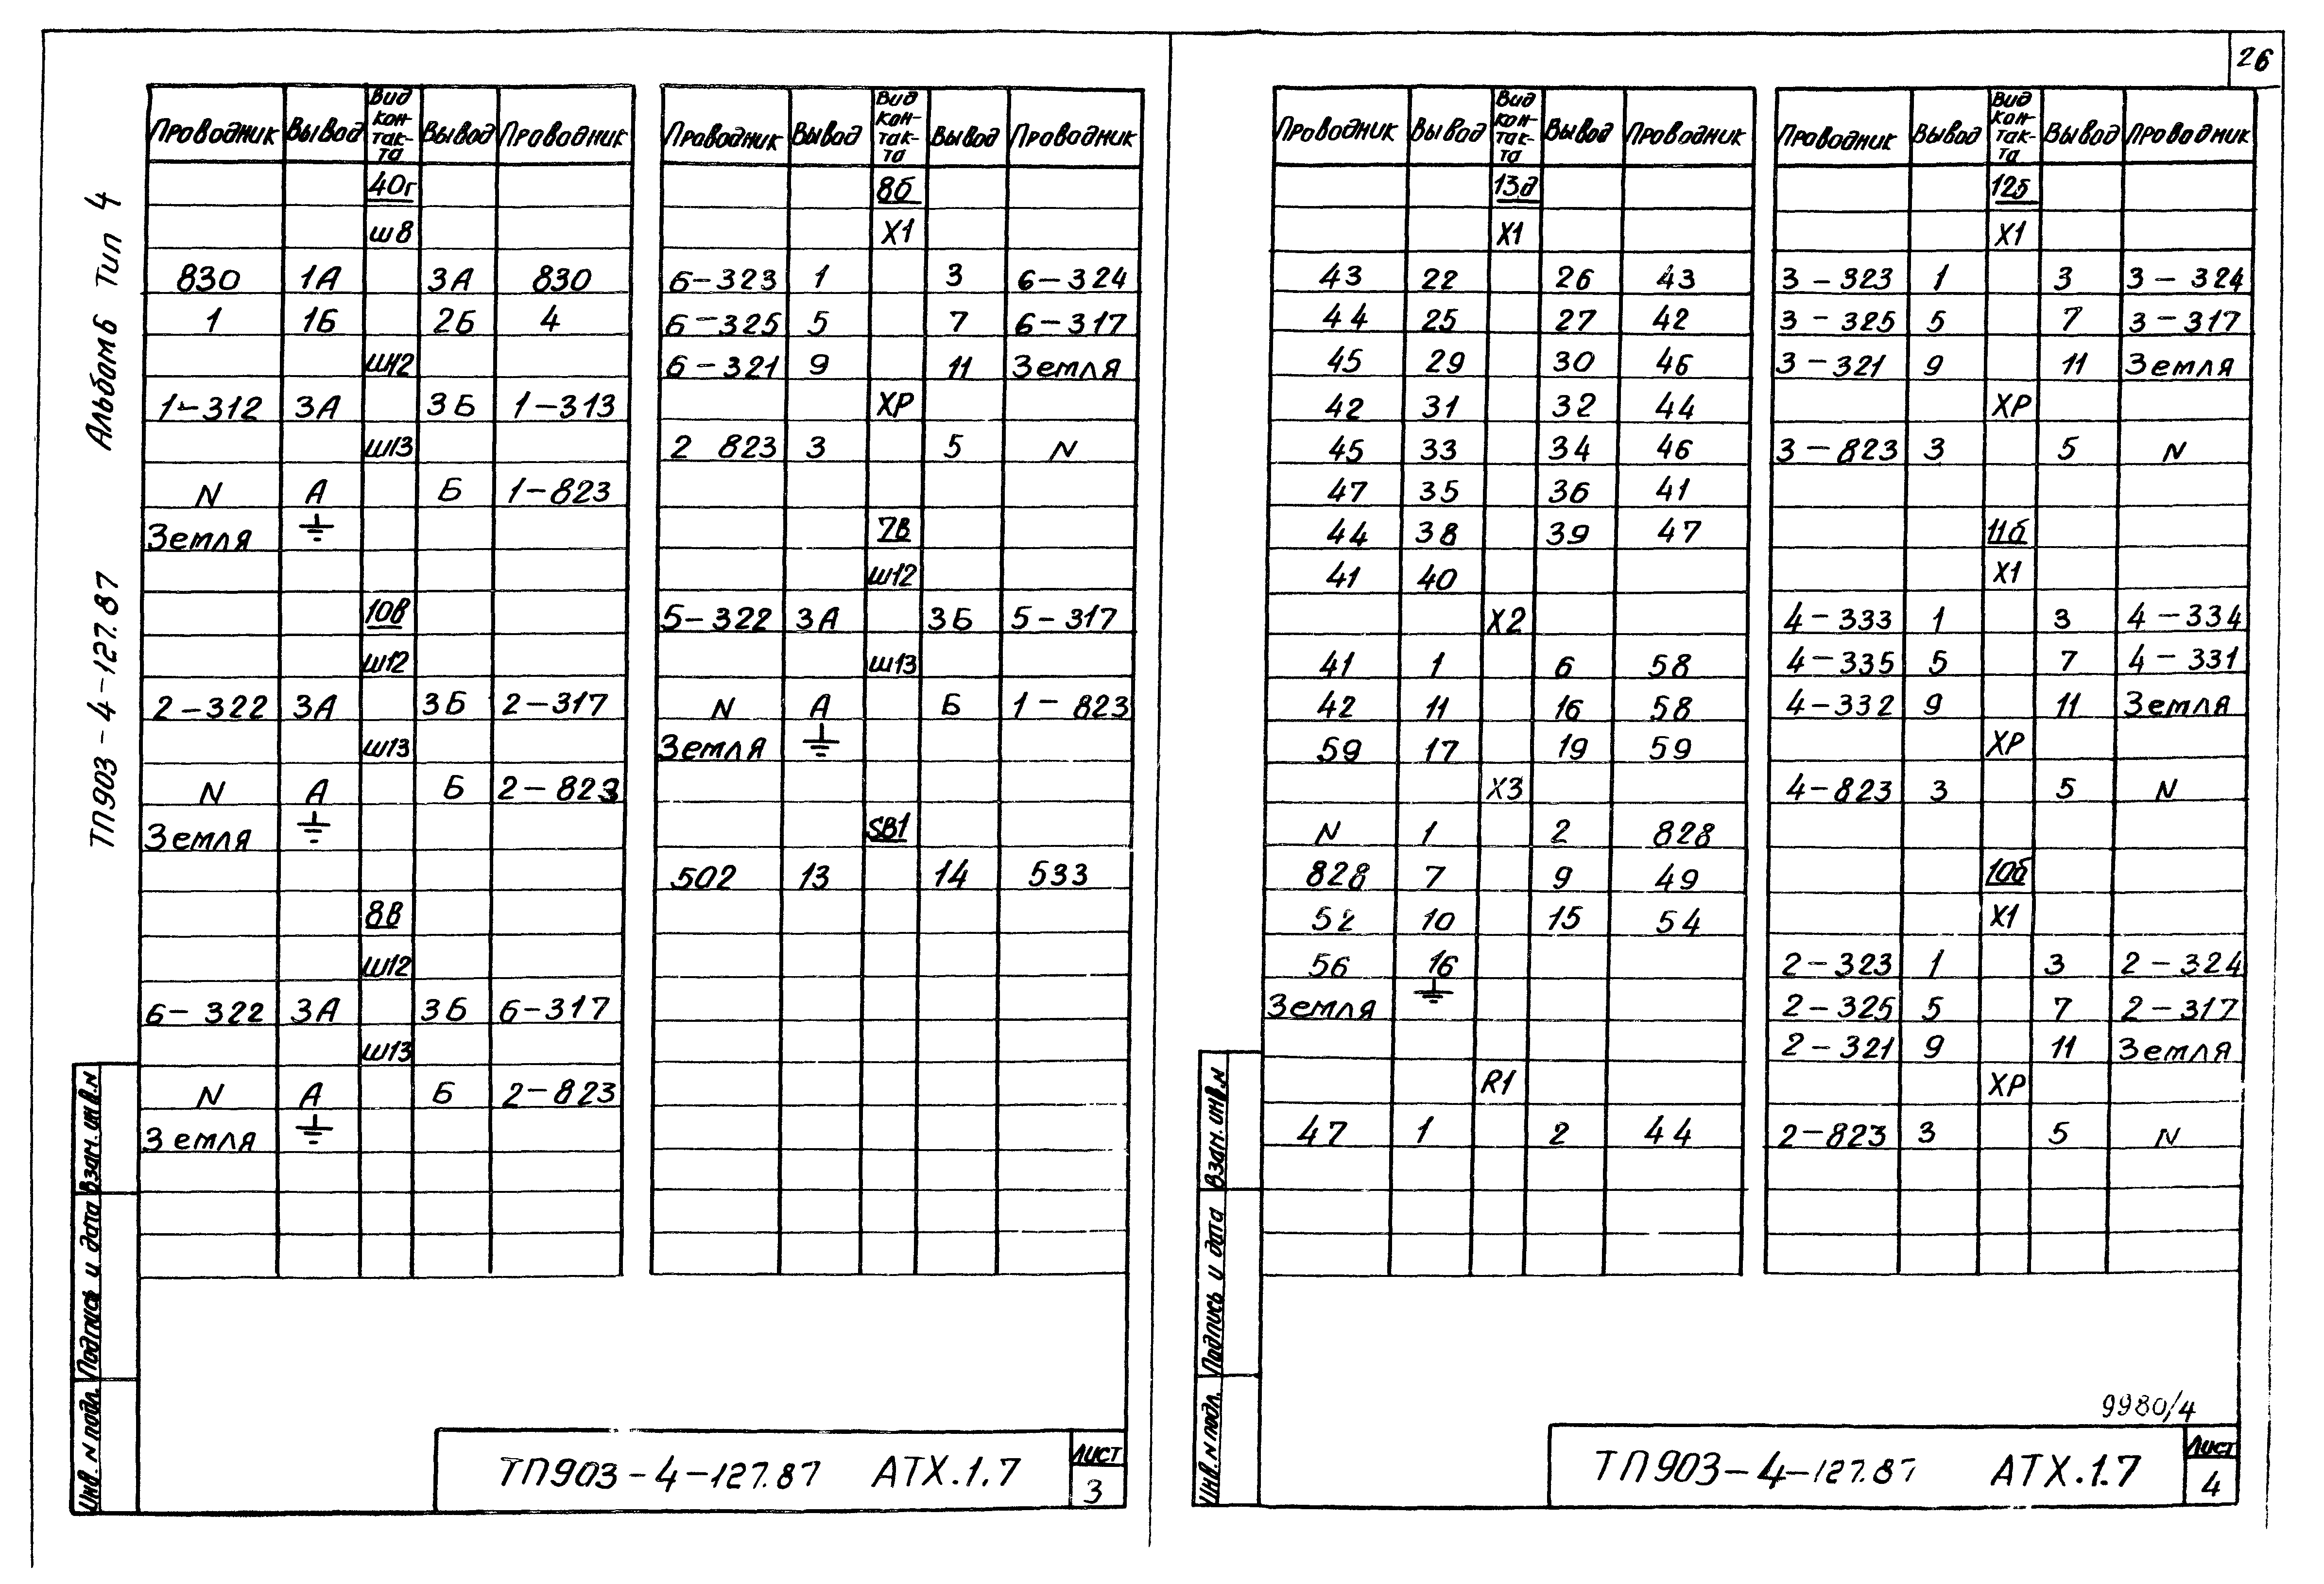 26
Альбом 6 Тип 4
ТП903-4-127.87
Проводник Вывод Вид кон-так-та Вывод Проводник
40г
ш8
830 1А 3А 830
1 1Б 2Б 4
ш12
1-312 3А 3Б 1-313
ш13
N А Б 1-823
Земля ⏚
10в
ш12
2-322 3А 3Б 2-317
ш13
N А Б 2-823
Земля ⏚
8в
ш12
6-322 3А 3Б 6-317
ш13
N А Б 2-823
Земля ⏚
Проводник Вывод Вид кон-так-та Вывод Проводник
8б
Х1
6-323 1 3 6-324
6-325 5 7 6-317
6-321 9 11 Земля
ХР
2 823 3 5 N
7в
ш12
5-322 3А 3Б 5-317
ш13
N А Б 1-823
Земля ⏚
SB1
502 13 14 533
Взам. инв. N
Подпись и дата
Инв. N подл.
ТП903-4-127.87 АТХ.1.7
Лист
3
Проводник Вывод Вид кон-так-та Вывод Проводник
13д
Х1
43 22 26 43
44 25 27 42
45 29 30 46
42 31 32 44
45 33 34 46
47 35 36 41
44 38 39 47
41 40
Х2
41 1 6 58
42 11 16 58
59 17 19 59
Х3
N 1 2 828
828 7 9 49
52 10 15 54
56 16
Земля ⏚
R1
47 1 2 44
Проводник Вывод Вид кон-так-та Вывод Проводник
12б
Х1
3-323 1 3 3-324
3-325 5 7 3-317
3-321 9 11 Земля
ХР
3-823 3 5 N
11б
Х1
4-333 1 3 4-334
4-335 5 7 4-331
4-332 9 11 Земля
ХР
4-823 3 5 N
10б
Х1
2-323 1 3 2-324
2-325 5 7 2-317
2-321 9 11 Земля
ХР
2-823 3 5 N
Взам. инв. N
Подпись и дата
Инв. N подл.
9980/4
ТП903-4-127.87 АТХ.1.7
Лист
4